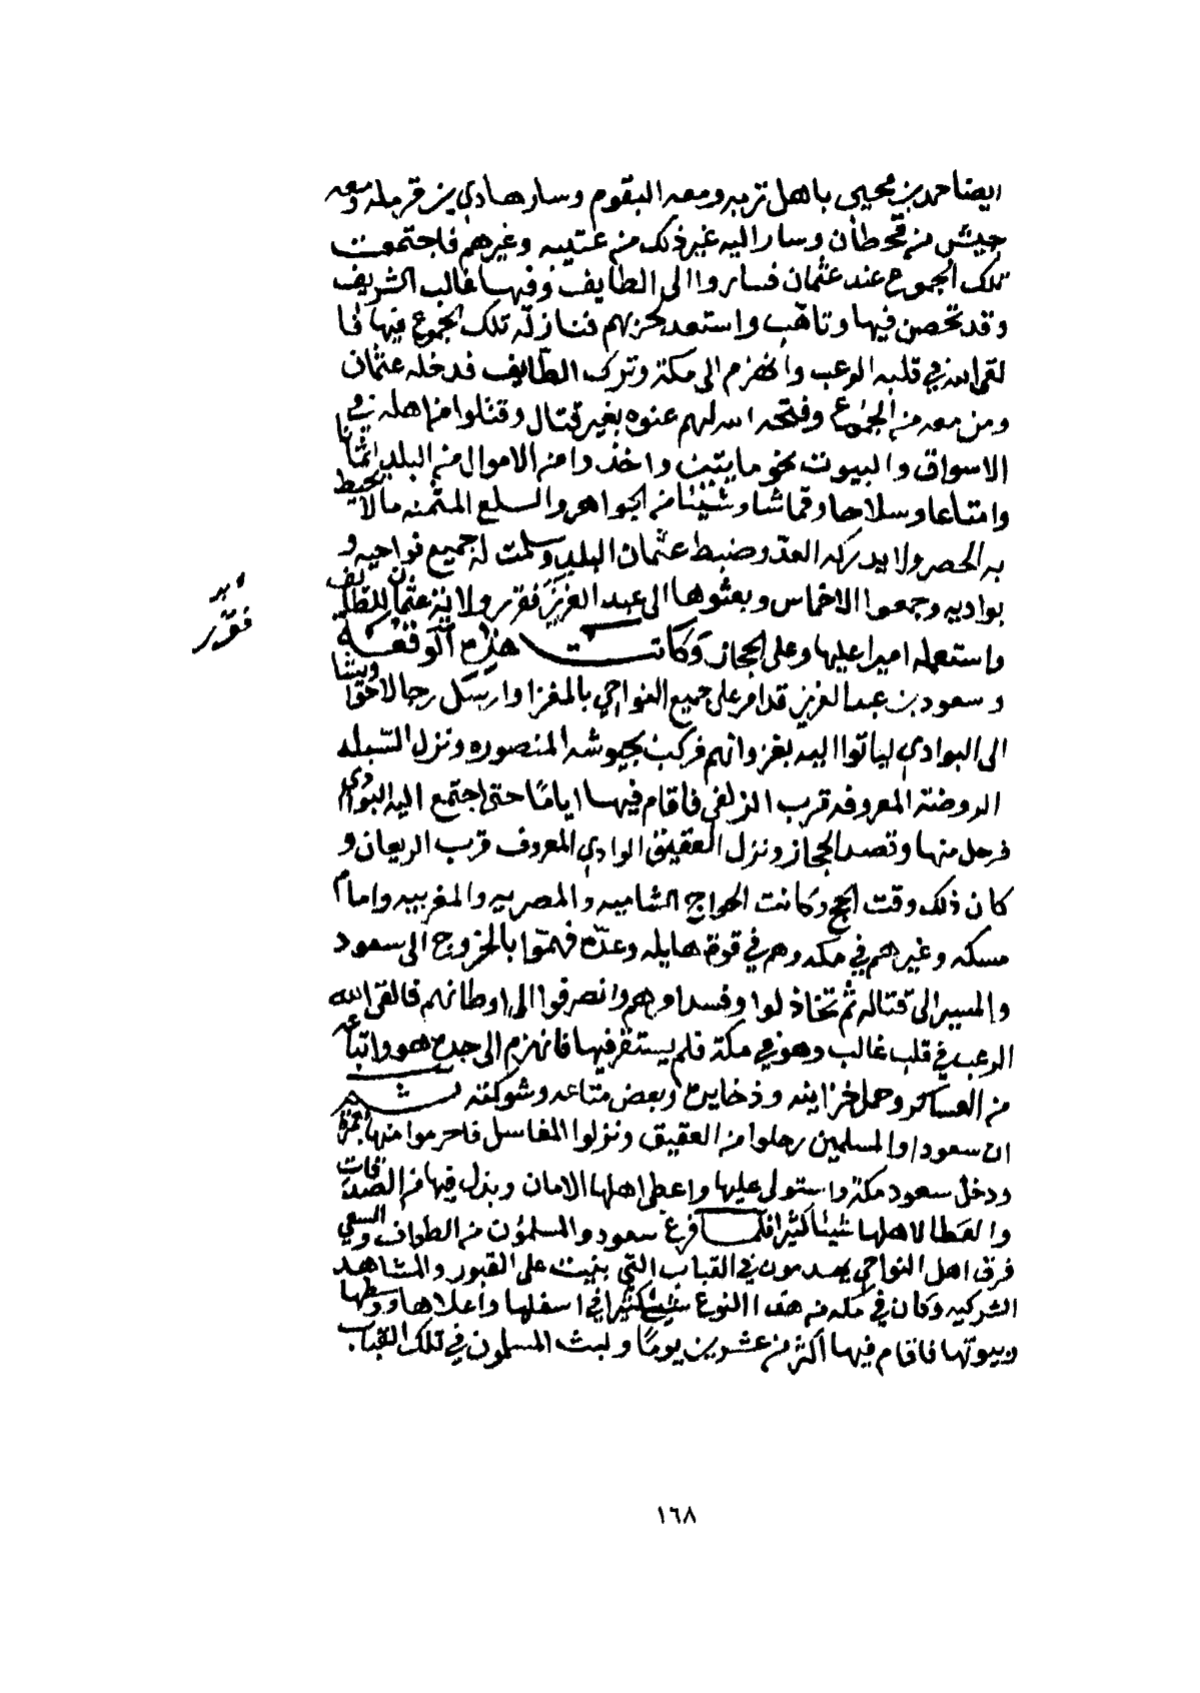 ايضا احمد بن يحيى باهل تربه ومعه البقوم وسار هادي بن قرمله ومعه
جيش من قحطان وسار اليه غير ذلك من عتيبه وغيرهم فاجتمعت
تلك الجموع عند عثمان فساروا الى الطايف وفيها غالب الشريف
وقد تحصن فيها وتاهب واستعد لحربهم فنازلته تلك الجموع فيها فا
لقى الله في قلبه الرعب وانهزم الى مكة وترك الطايف فدخله عثمان
ومن معه من الجموع وفتحه الله لهم عنوه بغير قتال وقتلوا من اهله في
الاسواق والبيوت نحو مايتين واخذوا من الاموال من البلد اثمانا
وامتاعا وسلاحا وقماشا وشيئا من الجواهر والسلع المثمنه مالا يحيط
به الحصر ولا يدركه العد وضبط عثمان البلد وسلمت له جميع نواحيه و
بواديه وجمعوا الاخماس وبعثوها الى عبد العزيز فقرر ولاية عثمان للطايف
واستعمله اميرا عليها وعلى الحجاز وكانت هذه الوقعة
وسعود بن عبد العزيز قد امر على جميع النواحي بالمغزا وارسل رجالا حقا وبيتا
الى البوادي لياتوا اليه بغزوانهم فركب بجيوشه المنصوره ونزل السبله
الروضة المعروفه قرب الزلفي فاقام فيها اياما حتى اجتمع اليه البوادي
فرحل منها وقصد الحجاز ونزل العقيق الوادي المعروف قرب الريعان و
كان ذلك وقت الحج وكانت الحواج الشاميه والمصريه والمغربيه وامام
مسكه وغيرهم في مكه وهم في قوة هايله وعده فهموا بالخروج الى سعود
والمسير الى قتاله ثم تخاذلوا وفسد امرهم وانصرفوا الى اوطانهم فالقى الله
الرعب في قلب غالب وهو في مكة فلم يستقر فيها فانهزم الى جده هو واتباعه
من العساكر وحمل خزاينه وذخايره وبعض متاعه وشوكته ثم
ان سعود والمسلمين رحلوا من العقيق ونزلوا المغاسل فاحرموا منها بعمرة
ودخل سعود مكة واستولى عليها واعطى اهلها الامان وبذل فيها من الصدقات
والعطا لاهلها شيئا كثيرا فلما فرغ سعود والمسلمون من الطواف والسعي
فرق اهل النواحي يهدمون في القباب التي بنيت على القبور والمشاهد
الشركيه وكان في مكه من هذا النوع شيئ كثير في اسفلها واعلاها ووسطها
وبيوتها فاقام فيها أكثر من عشرين يوما ولبث المسلمون في تلك القباب
فقرر
١٦٨